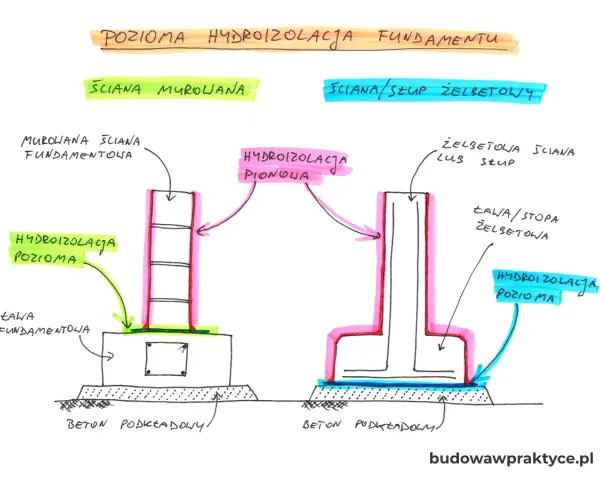 POZIOMA HYDROIZOLACJA FUNDAMENTU
ŚCIANA MUROWANA
ŚCIANA/SŁUP ŻELBETOWY
MUROWANA ŚCIANA
FUNDAMENTOWA
HYDROIZOLACJA
PIONOWA
ŻELBETOWA ŚCIANA
LUB SŁUP
HYDROIZOLACJA
POZIOMA
ŁAWA/STOPA
ŻELBETOWA
HYDROIZOLACJA
POZIOMA
ŁAWA
FUNDAMENTOWA
BETON PODKŁADOWY
BETON PODKŁADOWY
budowawpraktyce.pl